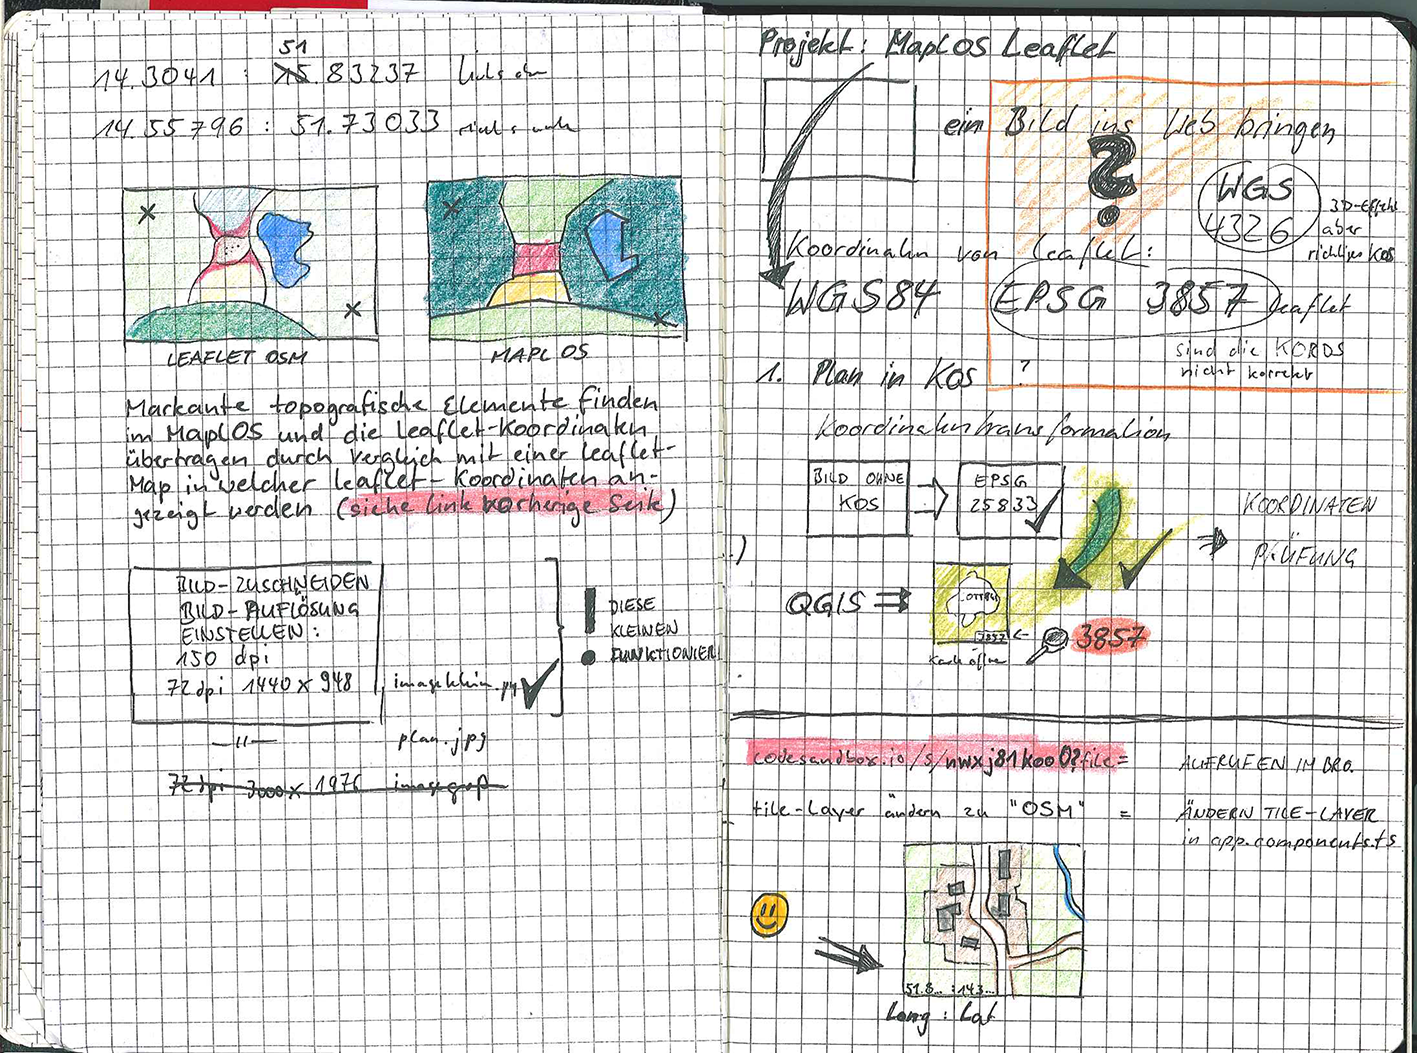 51
14.3041 : 15.83237 links oben
14.55796 : 51.73033 rechts unten
LEAFLET OSM
MAPLOS
Markante topografische Elemente finden
im MaplOS und die Leaflet-Koordinaten
übertragen durch vergleich mit einer leaflet-
Map in welcher leaflet-Koordinaten an-
gezeigt werden (siehe link vorherige Seite)
BILD-ZUSCHNEIDEN
BILD-AUFLÖSUNG
EINSTELLEN:
150 dpi
72 dpi 1440 x 948 imageklein.jpg
—11— plan.jpg
72 dpi 3000 x 1976 imagegroß
! DIESE
KLEINEN
FUNKTIONIER
Projekt: MaplOS Leaflet
ein Bild ins Web bringen
?
WGS
4326
3D-Effekt
aber
richtiges KOS
Koordinaten von Leaflet:
WGS84
EPSG 3857 leaflet
sind die KORDS
nicht korrekt
1. Plan in KOS ?
Koordinatentransformation
BILD OHNE
KOS
EPSG
25833
KOORDINATEN
PRÜFUNG
QGIS
3857
3857
Karte öffnen
codesandbox.io/s/nwxj81koo0?file= AUFRUFEN IM BRO.
tile-Layer ändern zu "OSM" = ÄNDERN TILE-LAYER
in app.components.ts
51.8... : 14.3...
Long : Lat